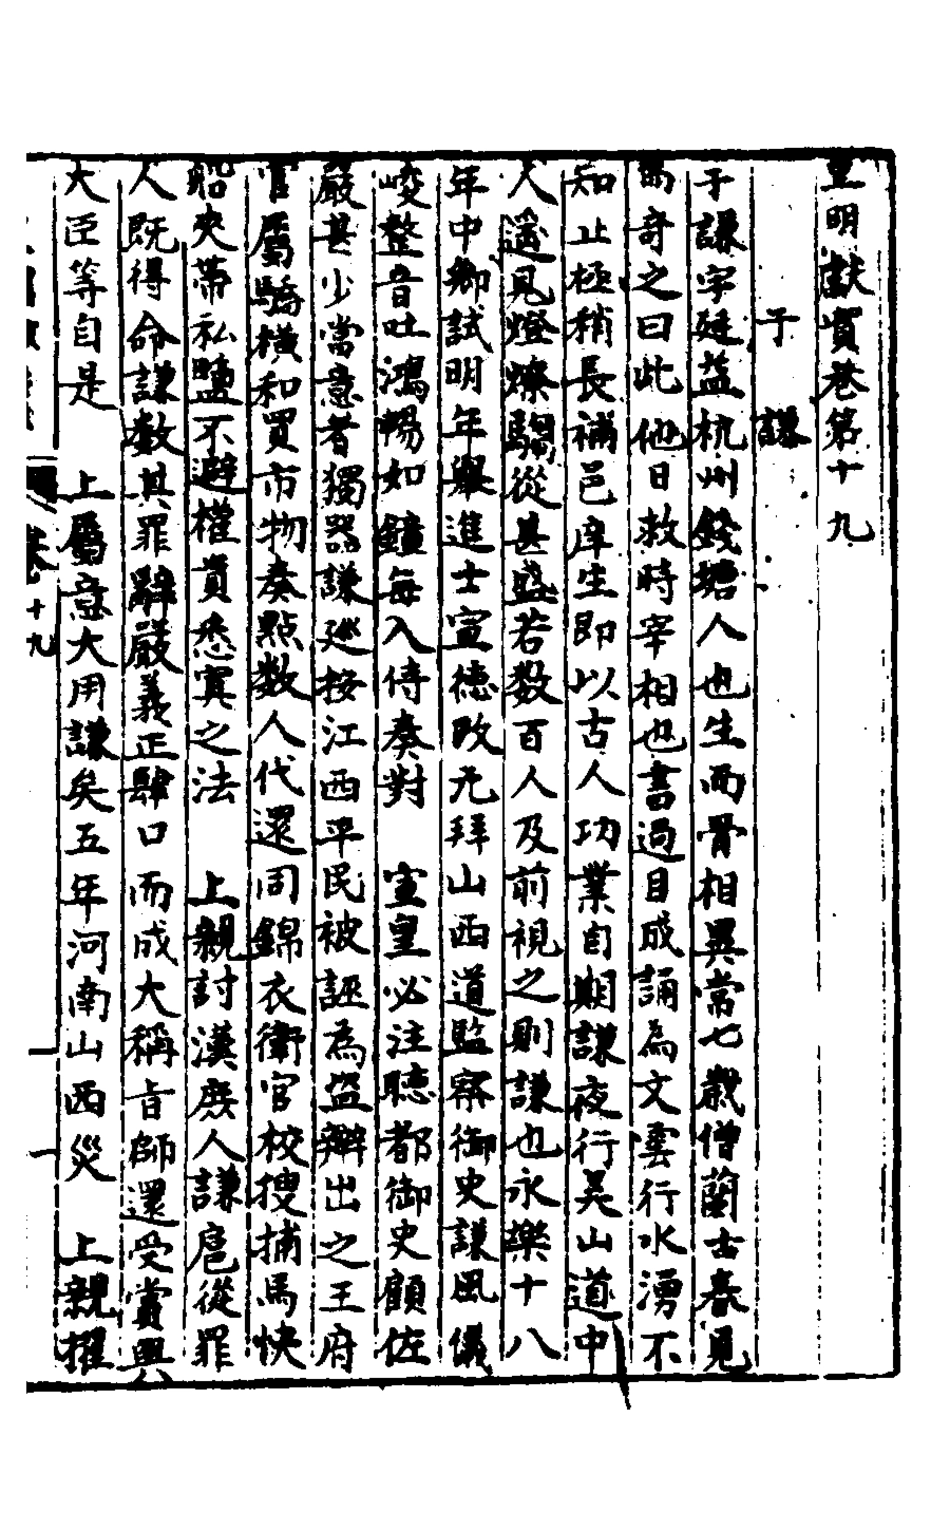 皇明獻實卷第十九
于謙
于謙字廷益杭州錢塘人也生而骨相異常七歲僧蘭古春見
而奇之曰此他日救時宰相也書過目成誦為文雲行水湧不
知止極稍長補邑庠生即以古人功業自期謙夜行吳山道中
人遙見燈燎騶從甚盛若数百人及前視之則謙也永樂十八
年中鄉試明年舉進士宣德改元拜山西道監察御史謙風儀
峻整音吐鴻暢如鐘每入侍奏對 宣皇必注聽都御史顧佐
嚴甚少當意者獨器謙廵按江西平民被誣為盜辯出之王府
官屬驕橫和買市物奏點数人代還同錦衣衛官校搜捕馬快
船夾帶私鹽不避權貴悉寘之法 上親討漢庶人謙扈從罪
人既得命謙数其罪辭嚴義正肆口而成大稱旨師還受賞與
大臣等自是 上屬意大用謙矣五年河南山西災 上親擢
卷十九